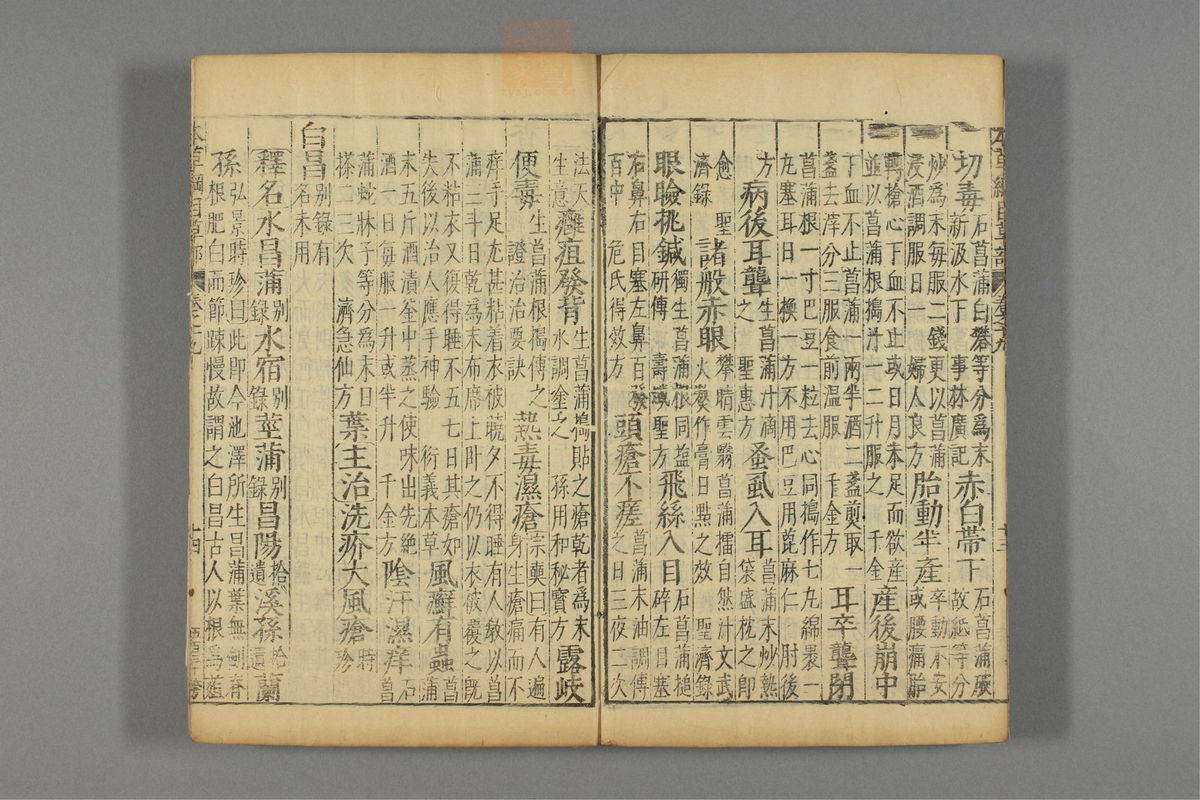 切毒 石菖蒲白礬等分為末
新汲水下 事林廣記 赤白帶下 石菖蒲破
故紙等分
炒為末每服二錢更以菖蒲
浸酒調服日一 婦人良方 胎動半產 卒動不安
或腰痛胎
轉搶心下血不止或日月未足而欲產
並以菖蒲根搗汁一二升服之 千金 產後崩中
下血不止菖蒲一兩半酒二盞煎取一
盞去滓分三服食前溫服 千金方 耳卒聾閉
菖蒲根一寸巴豆一粒去心同搗作七丸綿裹一
丸塞耳日一換一方不用巴豆用蓖麻仁 肘後
方 病後耳聾 生菖蒲汁滴
之 聖惠方 蚤虱入耳 菖蒲末炒熱
袋盛枕之即
愈 聖
濟錄 諸般赤眼 攀睛雲翳菖蒲擂自然汁文武
火熬作膏日點之效 聖濟錄
眼瞼挑鍼 獨生菖蒲根同鹽
研傅 壽域聖方 飛絲入目 石菖蒲搥
碎左目塞
右鼻右目塞左鼻百發
百中 危氏得效方 頭瘡不瘥 菖蒲末油調傅
之日三夜二次
法天
生意 癰疽發背 生菖蒲搗貼之瘡乾者為末
水調塗之 孫用和秘寶方 露岐
便毒 生菖蒲根搗傅之
證治治要訣 熱毒濕瘡 宗奭曰有人遍
身生瘡痛而不
痒手足尤甚粘着衣被曉夕不得睡有人教以菖
蒲三斗日乾為末布席上臥之仍以衣被覆之既
不粘衣又復得睡不五七日其瘡如
失後以治人應手神驗 衍義本草 風癬有蟲 菖
蒲
末五斤酒漬釜中蒸之使味出先絶
酒一日每服一升或半升 千金方 陰汗濕痒 石
菖
蒲蛇牀子等分為末日
搽二三次 濟急仙方 葉主治洗疥大風瘡 時
珍
白昌 別錄有
名未用
釋名水昌蒲 別
錄 水宿 別
錄 莖蒲 別
錄 昌陽 拾
遺 溪蓀 拾
遺 蘭
蓀 弘景時珍曰此即今池澤所生昌蒲葉無劍脊
根肥白而節踈慢故謂之白昌古人以根為菹
本草綱目草部 卷之十九 十三
本草綱目草部 卷之十九 十四